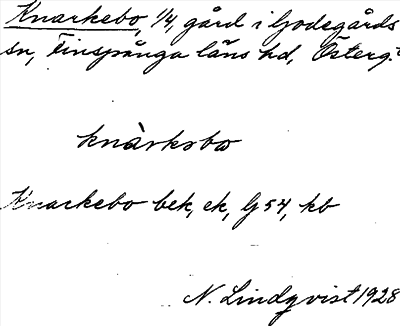 Knarkebo, 1/4, gård i Godegårds
sn, Finspånga läns hd, Österg.
knàrksbo
Knarkebo bek, ek, G 54, kb
N. Lindqvist 1928